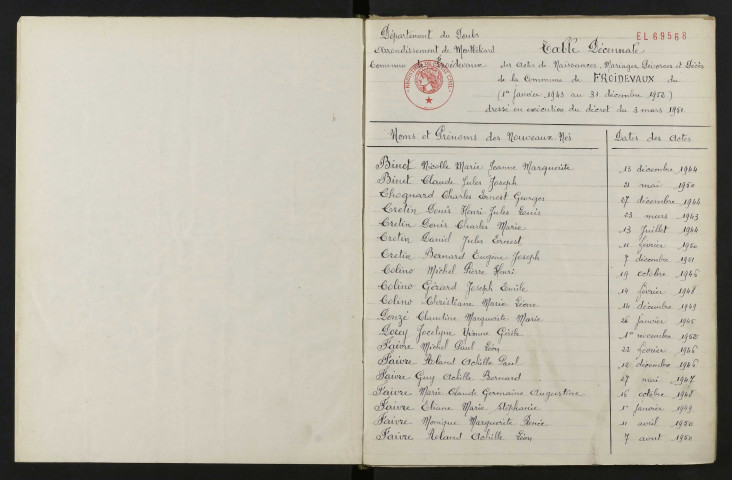 EL 69568
Département du Doubs
Arrondissement de Montbéliard
Commune de Froidevaux
Table Décennale
des Actes de Naissances, Mariages, Divorces et Décès
de la Commune de FROIDEVAUX du
(1er Janvier 1943 au 31 décembre 1952)
dressé en exécution du décret du 3 mars 1951.
Noms et Prénoms des Nouveaux-Nés Dates des Actes
Binet Nicolle Marie Jeanne Marguerite 13 décembre 1944
Binet Claude Jules Joseph 21 mai 1950
Chognard Charles Ernest Georges 27 décembre 1944
Cretin Denis Henri Jules Louis 23 mars 1943
Cretin Denis Charles Marie 13 Juillet 1944
Cretin Daniel Jules Ernest 11 février 1950
Cretin Bernard Eugène Joseph 7 décembre 1951
Colino Michel Pierre Henri 19 octobre 1946
Colino Gérard Joseph Emile 14 février 1948
Colino Christiane Marie 14 décembre 1949
Donzé Claudine Marguerite Marie 26 Janvier 1945
Jocelyne Yvonne 1er novembre 1952
Faivre Michel Paul Léon 22 février 1946
Faivre Roland Achille Paul 12 décembre 1946
Faivre Guy Achille Bernard 27 mai 1947
Faivre Marie Claude Germaine Augustine 16 octobre 1948
Faivre Eliane Marie Stéphanie 1er Janvier 1949
Faivre Monique Marguerite Renée 11 avril 1950
Faivre Roland Achille Léon 7 août 1950